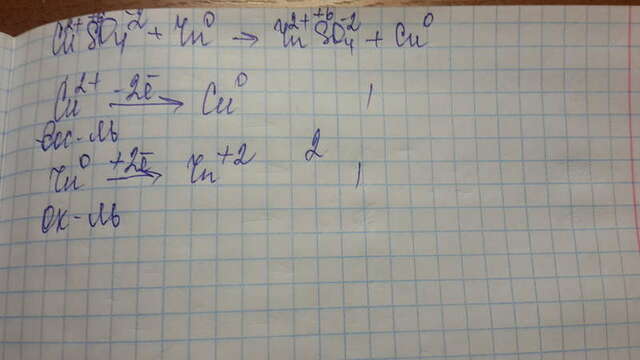 Cu²⁺S⁺⁶O₄⁻² + Zn⁰ → Zn²⁺S⁺⁶O₄⁻² + Cu⁰
Cu²⁺ -2ē → Cu⁰ 1
вос-ль
Zn⁰ +2ē → Zn⁺² 2 1
ок-ль